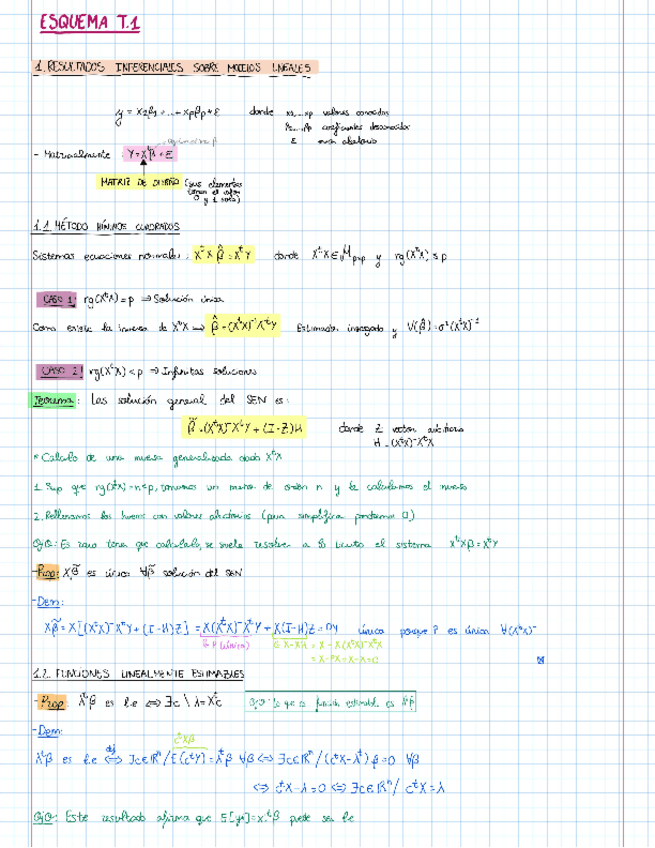 ESQUEMA T.1
1. RESULTADOS INFERENCIALES SOBRE MODELOS LINEALES
y = x₁β₁ + ... + xₚβₚ + ε donde x₁...xₚ valores conocidos
β₁...βₚ coeficientes desconocidos
ε error aleatorio
- Matricialmente: Y = Xβ + ε
MATRIZ DE DISEÑO (sus elementos toman el valor 0 y 1 solo)
1.1 MÉTODO MÍNIMOS CUADRADOS
Sistemas ecuaciones normales: XᵗXβ̂ = XᵗY donde XᵗX ∈ Mₚₓₚ y rg(XᵗX) ≤ p
CASO 1: rg(XᵗX) = p ⇒ Solución única
Como existe la inversa de XᵗX ⇒ β̂ = (XᵗX)⁻¹XᵗY Estimador insesgado y V(β̂) = σ²(XᵗX)⁻¹
CASO 2: rg(XᵗX) < p ⇒ Infinitas soluciones
Teorema: Las solución general del SEN es:
β̃ = (XᵗX)⁻XᵗY + (I - Z)H donde Z vector arbitrario
H = (XᵗX)⁻XᵗX
* Calculo de una inversa generalizada dada XᵗX
1. Sup que rg(XᵗX) = n < p, tomamos un menor de orden n y le calculamos el inverso
2. Rellenamos los huecos con valores aleatorios (para simplificar pondremos 0)
OJO: Es raro tener que calcularlo, se suele resolver a lo bruto el sistema XᵗXβ = XᵗY
- Prop: Xβ̃ es único ∀β̃ solución del SEN
- Dem:
Xβ̃ = X[(XᵗX)⁻XᵗY + (I - H)Z] = X(XᵗX)⁻XᵗY + X(I-H)Z = PY única porque P es única ∀(XᵗX)⁻
P (único) X - XH = X - X(XᵗX)⁻XᵗX
= X - PX = X - X = 0
1.2. FUNCIONES LINEALMENTE ESTIMABLES
- Prop: λᵗβ es l.e ⇔ ∃c \ λ = Xᵗc OJO: lo que es función estimable es λᵗβ
- Dem:
cᵗXβ
λᵗβ es l.e ⇔ def ∃c∈ℝⁿ / E(cᵗY) = λᵗβ ∀β ⇔ ∃c∈ℝⁿ / (cᵗX - λᵗ)β = 0 ∀β
⇔ cᵗX - λ = 0 ⇔ ∃c∈ℝⁿ / cᵗX = λ
OJO: Este resultado afirma que E[yᵢ] = xᵢᵗβ puede ser l.e